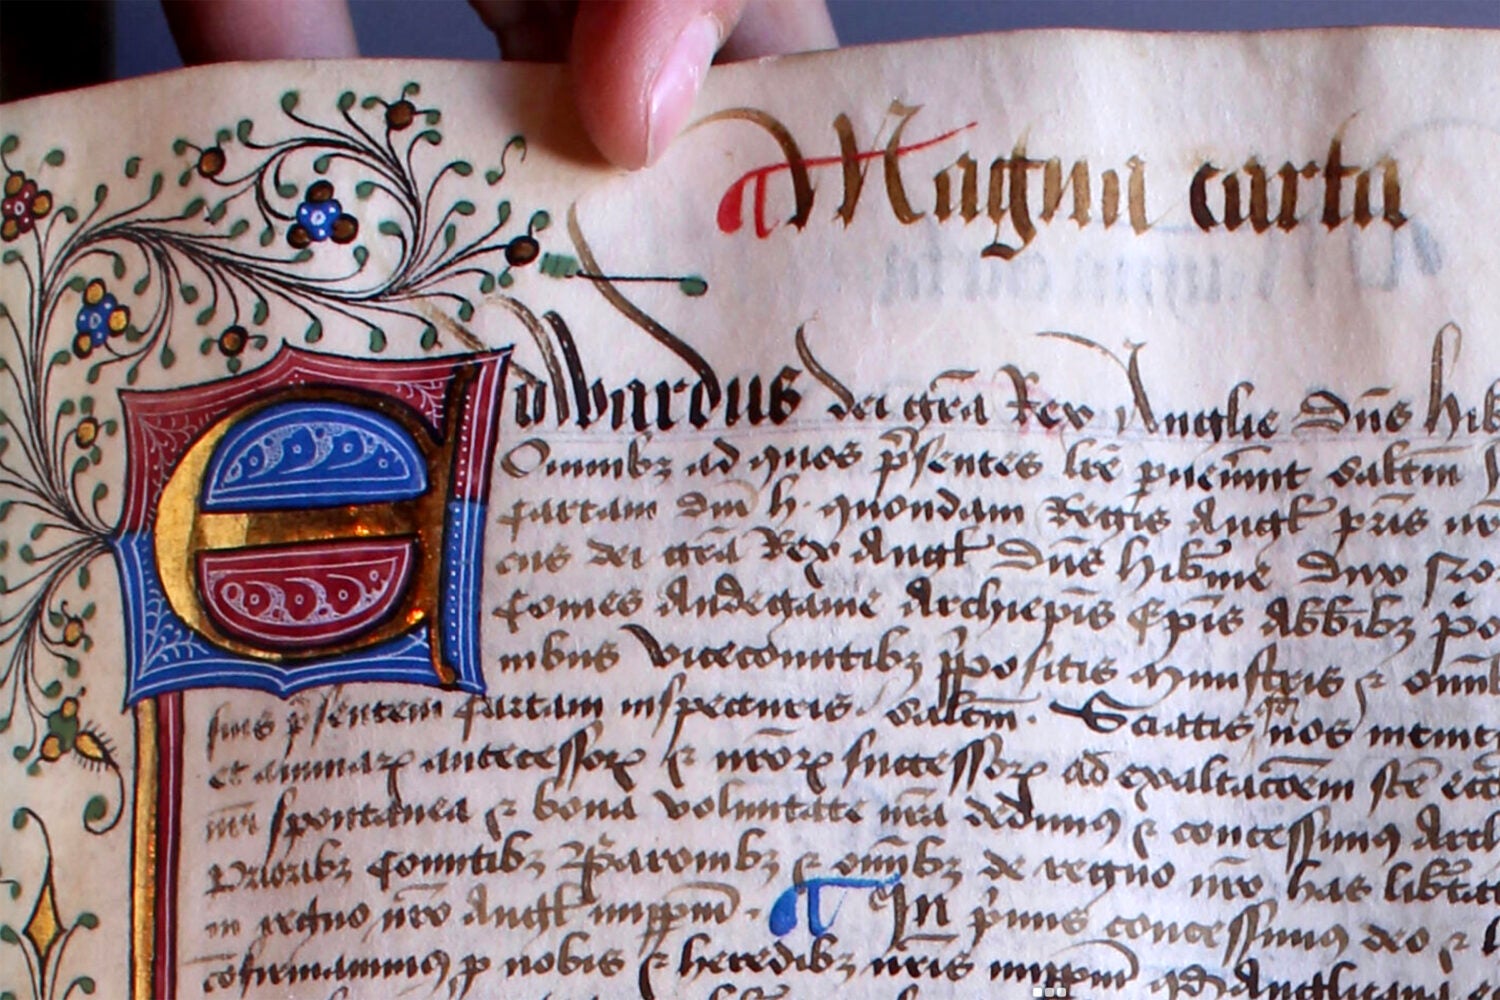 Magna carta
Edwardus dei grã Rex Anglie Dñs Hib
Omnibz ad quos p̃sentes lrẽ puen̄int saltm̃
Cartam dn̄i h. quondam Regis Angł pr̃is nr̃
cus dei grã Rex Angł Dñs hibñie Dux
Comes Andegauie Archiepĩs Ep̃is Abb̃ibz
nibus vicecomitibz p̃positis ministris ⁊ om̃ib
suis p̃sentem Cartam inspecturis saltm̃. Sciatis qđ nos
et animarꝝ antecessoꝝ ⁊ nr̃oꝝ successoꝝ ad exaltac̃oem sc̃e
spontanea ⁊ bona voluntate nr̃a dedimꝰ ⁊ concessimꝰ Arch
Prioribz Comitibz Baronibz ⁊ om̃ibz de regno nr̃o has lib̃tat
in regno nr̃o Angł imppm̃. In p̃mis concessimꝰ deo ⁊
cõfirmauimꝰ p nobis ⁊ heredibz nr̃is imppm̃ qđ Anglicana